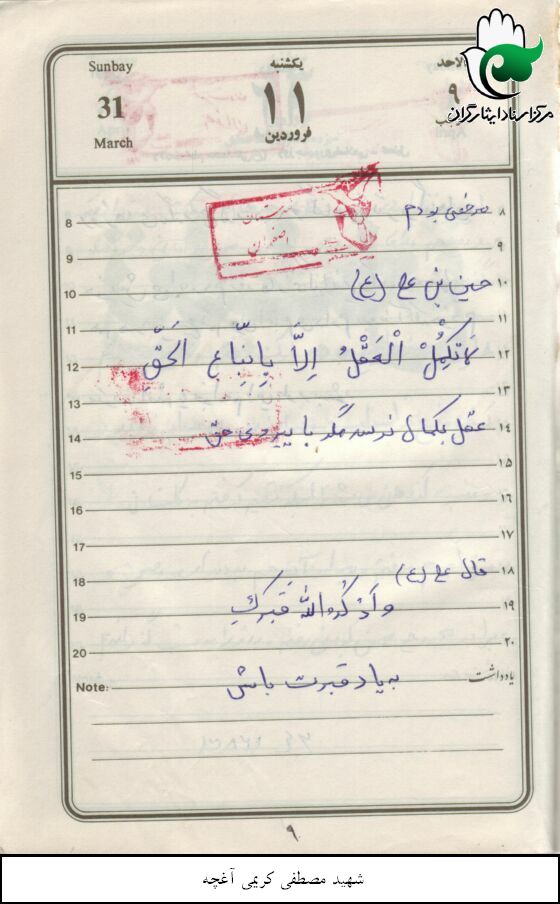 Sunbay
31
March
یکشنبه
۱۱
فروردین
الاحد
۹
مرکز اسناد ایثارگران
8 مرخصی بودم ۸
9 ۹
10 حسین بن علی (ع) ۱۰
11 ۱۱
12 لاَتَکمِلُ الْعَقْلُ اِلاَّ بِاِتِّباعِ الحَقِّ ۱۲
13 ۱۳
14 عقل بکمال نرسد مگر با پیروی حق ۱۴
15 ۱۵
16 ۱۶
17 ۱۷
18 قال علی (ع) ۱۸
19 وَاذْکُرواللهِ قَبرکِ ۱۹
20 ۲۰
Note: به یاد قبرت باش یادداشت
۹
شهید مصطفی کریمی آغچه